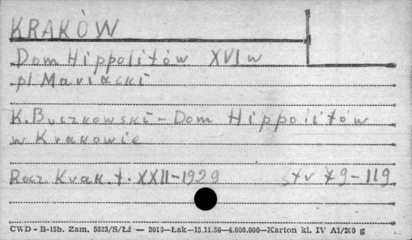 KRAKÓW
Dom Hippolitów XVI w
pl Mariacki
K. Buczkowski - Dom Hippolitów
w Krakowie
Rocz. Krak. t. XXII-1929 str 79-119
CWD - B-15b. Zam. 5823/S/Łi — 3015—Łak—15.11.56—4.000.000—Karton kl. IV A1/200 g